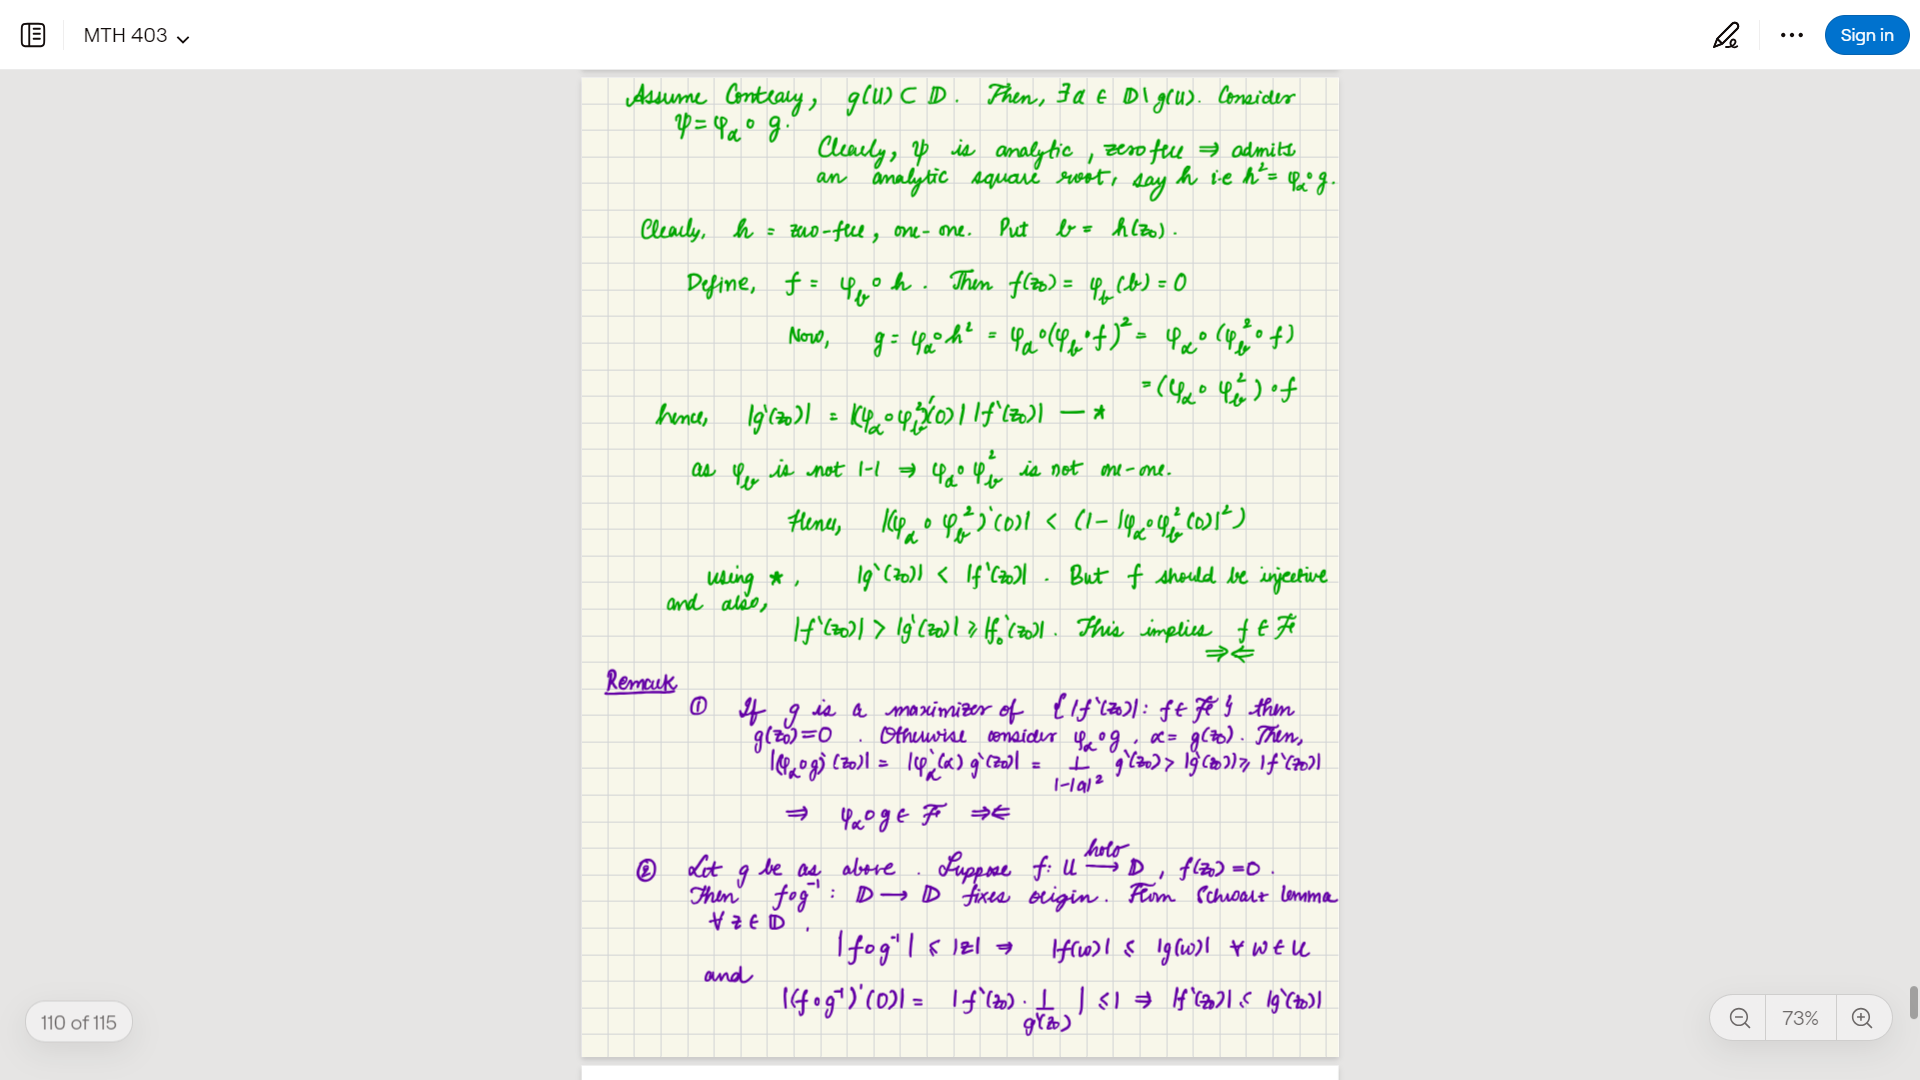 MTH 403
Sign in
Assume Contrary, g(U) ⊂ 𝔻. Then, ∃ α ∈ 𝔻\g(U). Consider
ψ = φ_α ∘ g.
Clearly, ψ is analytic, zero free ⇒ admits
an analytic square root, say h i.e h² = φ_α∘g.
Clearly, h = zero-free, one-one. Put b = h(z₀).
Define, f = φ_b ∘ h. Then f(z₀) = φ_b(b) = 0
Now, g = φ_α∘h² = φ_α∘(φ_b∘f)² = φ_α∘(φ_b²∘f)
= (φ_α∘φ_b²)∘f
hence, |g'(z₀)| = |(φ_α∘φ_b²)'(0)| |f'(z₀)| — *
as φ_b is not 1-1 ⇒ φ_α∘φ_b² is not one-one.
Hence, |(φ_α∘φ_b²)'(0)| < (1-|φ_α∘φ_b²(0)|²)
using *, |g'(z₀)| < |f'(z₀)|. But f should be injective
and also,
|f'(z₀)| > |g'(z₀)| ≥ |f₀'(z₀)|. This implies f ∈ ℱ
⇒⇐
Remark
① If g is a maximizer of {|f'(z₀)| : f ∈ ℱ} then
g(z₀)=0. Otherwise consider φ_α∘g, α = g(z₀). Then,
|(φ_α∘g)'(z₀)| = |φ_α'(α) g'(z₀)| = 1/(1-|α|²) g'(z₀) > |g'(z₀)| ≥ |f'(z₀)|
⇒ φ_α∘g ∈ ℱ ⇒⇐
holo
② Let g be as above. Suppose f: U ⟶ 𝔻, f(z₀)=0.
Then f∘g⁻¹ : 𝔻 ⟶ 𝔻 fixes origin. From Schwart lemma
∀ z ∈ 𝔻,
|f∘g⁻¹| ≤ |z| ⇒ |f(w)| ≤ |g(w)| ∀ w ∈ U
and
|(f∘g⁻¹)'(0)| = |f'(z₀) · 1/g'(z₀)| ≤ 1 ⇒ |f'(z₀)| ≤ |g'(z₀)|
110 of 115
73%